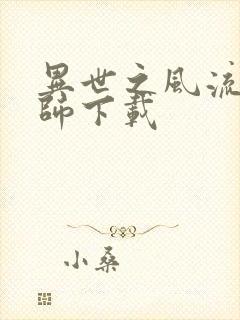 異世之風流
師下載
小桑